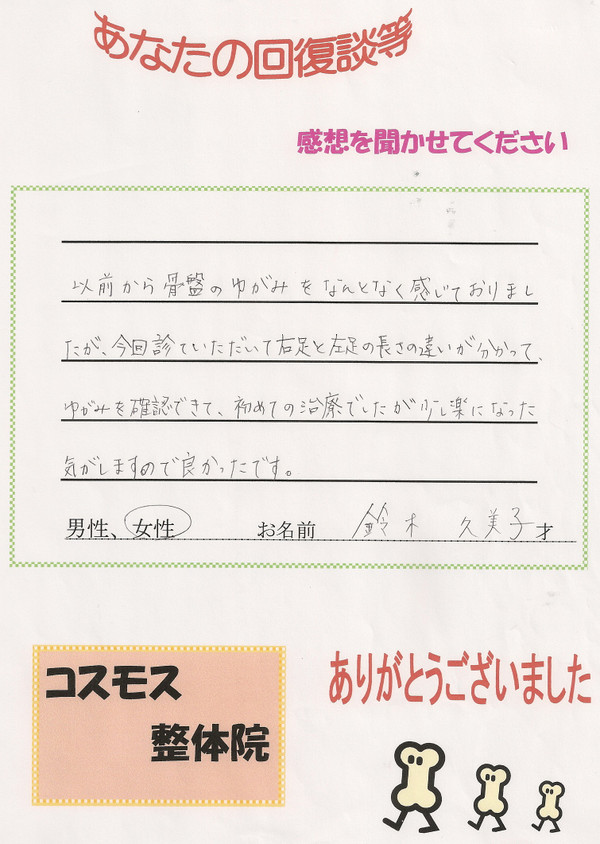 あなたの回復談等
感想を聞かせてください
以前から骨盤のゆがみをなんとなく感じておりまし
たが、今回診ていただいて右足と左足の長さの違いが分かって、
ゆがみを確認できて、初めての治療でしたが少し楽になった
気がしますので良かったです。
男性、女性 お名前 鈴木 久美子 才
コスモス
整体院
ありがとうございました